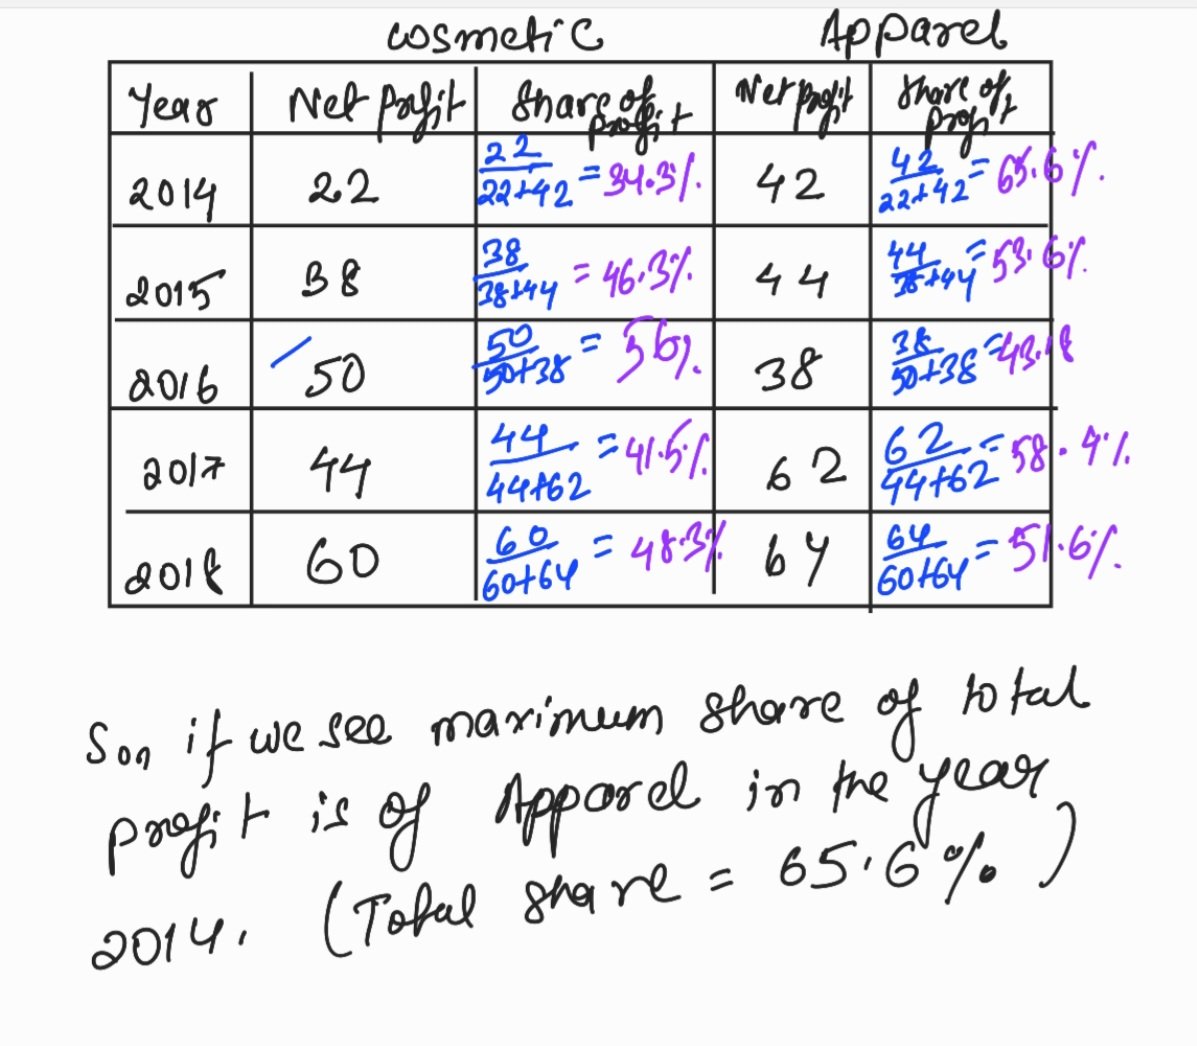 cosmetic Apparel
Year Net Profit Share of profit Net profit Share of profit
2014 22 22/22+42 = 34.3% 42 42/22+42 = 65.6%
2015 38 38/38+44 = 46.3% 44 44/38+44 = 53.6%
2016 50 50/50+38 = 56% 38 38/50+38 = 43.18
2017 44 44/44+62 = 41.5% 62 62/44+62 = 58.4%
2018 60 60/60+64 = 48.3% 64 64/60+64 = 51.6%
So, if we see maximum share of total
profit is of Apparel in the year
2014. (Total share = 65.6%)